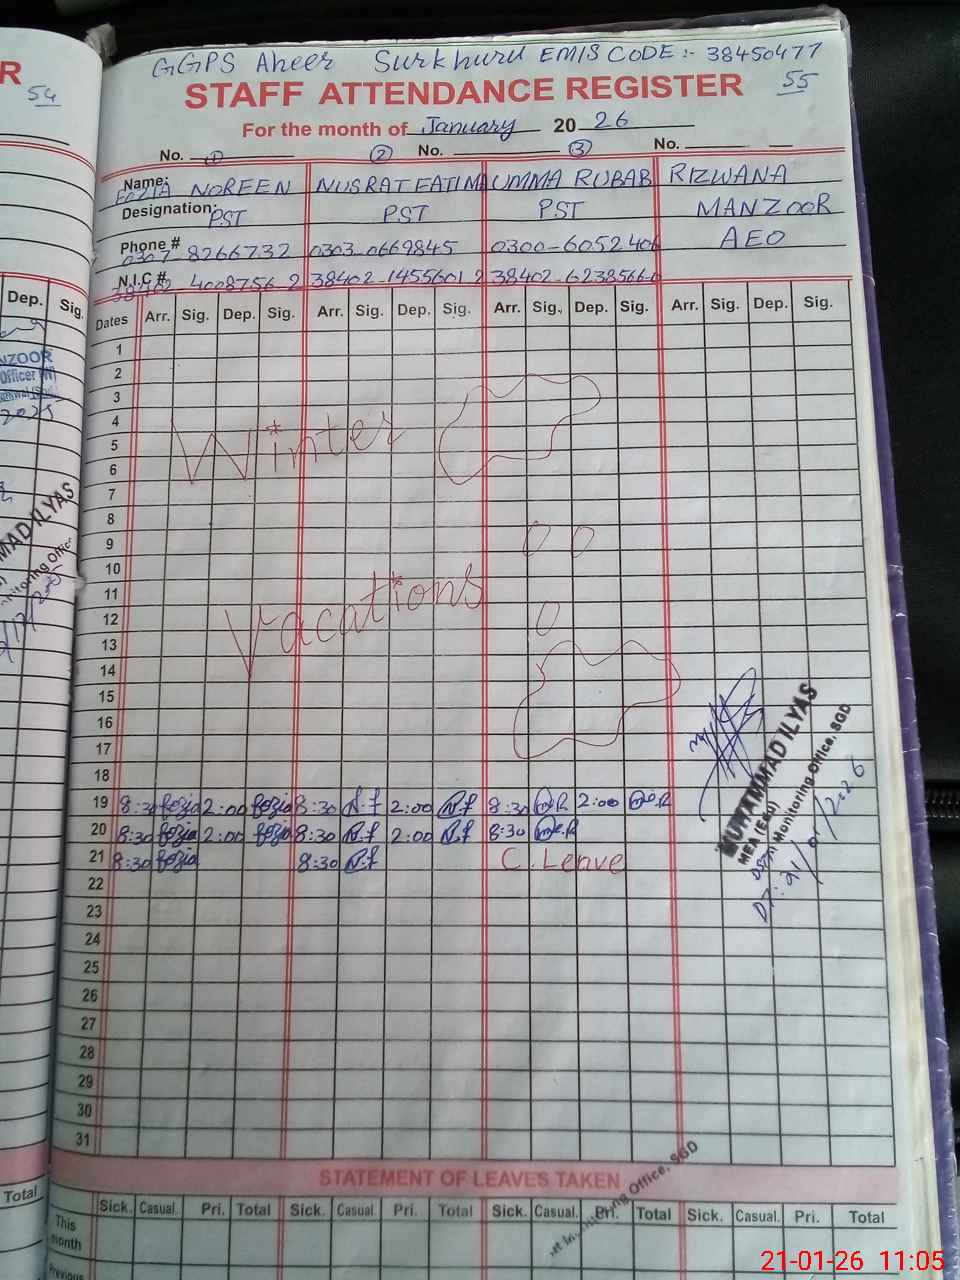 GGPS Aheer Surkhuru EMIS CODE:- 38450477
R
54
STAFF ATTENDANCE REGISTER
55
For the month of January 2026
No. 1 2 No. 3 No.
Name: FOZIA NOREEN NUSRAT FATIMA UMMA RUBAB RIZWANA
Designation: PST PST PST MANZOOR
Phone # 0307-8266732 0303-0669845 0300-6052406 AEO
N.I.C # 38402 4008756-2 38402-1455601 2 38402-6238566-0
Dep. Sig. Dates Arr. Sig. Dep. Sig. Arr. Sig. Dep. Sig. Arr. Sig. Dep. Sig. Arr. Sig. Dep. Sig.
1
NZOOR
2
Officer
3
2025
4
Winter
5
6
7
8
MAD ILYAS
9
nitoring Office
10
11
Vacations
12
13
14
15
16
17
18
19 8:30 fozia 2:00 fozia 8:30 N.f 2:00 N.f 8:30 m.R 2:00 m.R
20 8:30 fozia 2:00 fozia 8:30 N.f 2:00 N.f 8:30 m.R
21 8:30 fozia 8:30 N.f C. Leave
MUHAMMAD ILYAS
MEA (Edu)
Monitoring Office, SGD
DT: 21/01/2026
22
23
24
25
26
27
28
29
30
31
STATEMENT OF LEAVES TAKEN
Monitoring Office, SGD
Total Sick. Casual. Pri. Total Sick. Casual. Pri. Total Sick. Casual. Pri. Total Sick. Casual. Pri. Total
This month
Previous
21-01-26 11:05